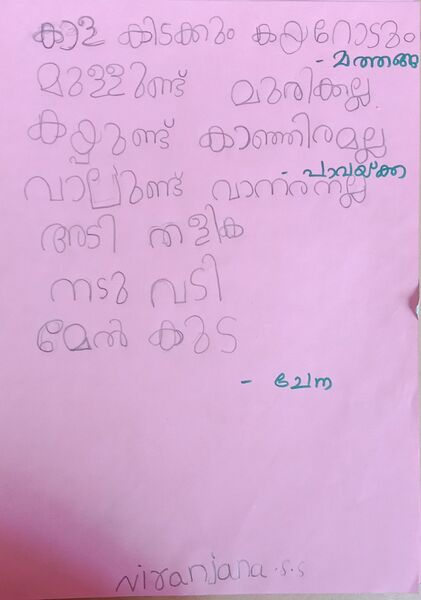 കാള കിടക്കും കയറോടും
- മത്തങ്ങ
മുള്ളുണ്ട് മുരിക്കല്ല
കയ്പുണ്ട് കാഞ്ഞിരമല്ല
- പാവയ്ക്ക
വാലുണ്ട് വാനരനല്ല
അടി തളിക
നടു വടി
മേൽ കുട
- ചേന
Niranjana.S.S